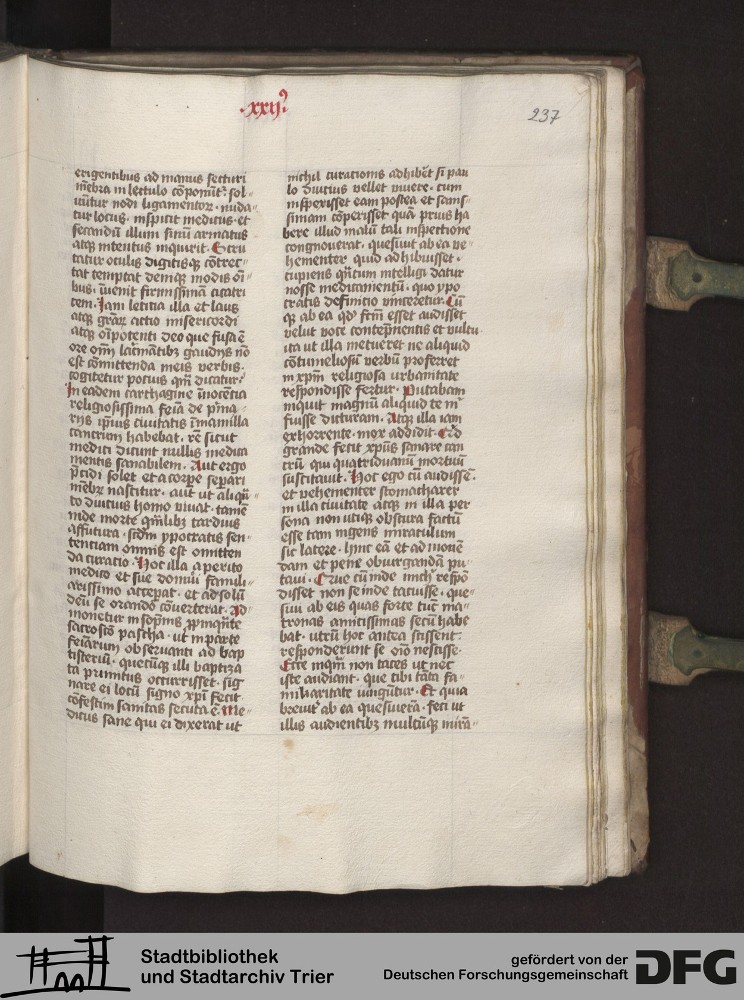 .xxij⁹
237
erigentibus ad manus secturi
mēbra in lectulo cōponūt᷑. sol
uūtur nodi ligamentoꝝ. nuda
tur locus. inspicit medicus. et
secandū illum sinū armatus
atqꝫ intentus inquirit. Scru
tatur oculis digitisqꝫ cōtrec
tat temptat deniqꝫ modis oī
bus. īuenit firmissimā cicatri
cem. Iam leticia illa et laus
atqꝫ graꝝ actio misericordi
atqꝫ oīpotenti deo que fusa ē
ore oīm lacrimātibꝫ gaudijs nō
est cōmittenda meis verbis.
cogitetur pocius qm̄ dicatur.
In eadem carthagine īnocētia
religiosissima feīa de pͥma
rijs ipīus ciuitatis ī mamilla
cancrum habebat. rē sicut
medici dicunt nullis medica
mentis sanabilem. Aut ergo
p̄cidi solet et a corpe separi
mēbꝝ nascitur. aut ut aliqū
to diucius homo viuat. tamē
inde morte qm̄libꝫ tardius
affutura. scd̄m ypocratis sen
tentiam omnis est omitten
da curatio. Hoc illa a perito
medico et sue domui famili
arissimo accepat. et ad solū
deū se orando cōuerterat. Ad
monetur in sōpnis ꝓpinqͣnte
sacrostō pascha. ut in parte
feīarum obseruanti ad bap
tisteriū. quecūqꝫ illi baptiza
ta primitus occurrisset. sig
nare ei locū signo xpī fecit.
cōfestim sanitas secuta ē. Me
dicus sane qui ei dixerat ut
nichil curationis adhibēt si pau
lo diucius vellet viuere. cum
inspexisset eam postea et sanis
simam cōperisset quā prius ha
bere illud malū tali inspectione
congnouerat. quesiuit ab ea ve
hementer quid adhibuisset.
cupiens qn̄tum intelligi datur
nosse medicamentū. quo ypo
cratis definitio vinceretur. Cū
qꝫ ab ea qd̓ fcm̄ esset audisset
velut voce contēpnentis et vultu
ita ut illa metueret ne aliquid
cōtumeliosū verbū proferret
in xpm̄ religiosa vrbanitate
respondisse fertur. Putabam
inquit magnū aliquid te mͥ
fuisse dicturam. Atqꝫ illa iam
exhorrente. mox addidit. Qͥd
grande fecit xpūs sanare can
crū qui quatriduanū mortuū
suscitauit. Hoc ego cū audissē.
et vehementer stomacharer
in illa ciuitate atqꝫ in illa per
sona non utiqꝫ obscura factū
esse tam ingens miraculum
sic latere. hinc eā et ad monē
dam et pene obiurgandam pu
taui. Que cū inde michͥ respō
disset non se inde tacuisse. que
siui ab eis quas forte tūc ma
tronas amicissimas secū habe
bat. utrū hoc antea scissent.
responderunt se oīo nescisse.
Ecce inqm̄ non taces ut nec
iste audiant. que tibi tāta fa
miliaritate iungūtur. Et quia
breuit᷑ ab ea quesiuerā. feci ut
illis audientibꝫ multūqꝫ mirā
Stadtbibliothek
und Stadtarchiv Trier
gefördert von der
Deutschen Forschungsgemeinschaft
DFG